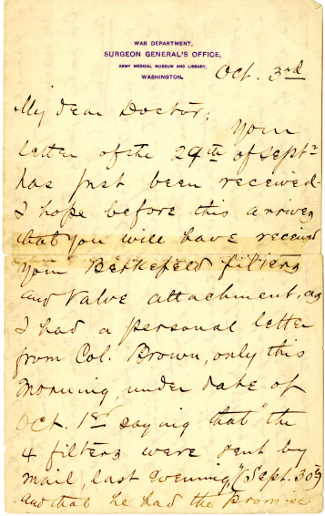 WAR DEPARTMENT,
SURGEON GENERAL'S OFFICE,
ARMY MEDICAL MUSEUM AND LIBRARY,
WASHINGTON.
Oct. 3rd
My dear Doctor;
Your
letter of the 29th of Septr
has just been received.
I hope before this arrives
that you will have received
your Berkefeld filters
and Valve attachment, as
I had a personal letter
from Col. Brown, only this
morning, under date of
Oct. 1st saying that "the
4 filters were sent by
mail, last evening," (Sept. 30th)
and that he had the promise